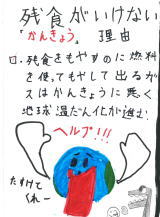 残食がいけない
「かんきょう」理由
□.残食をもやすのに燃料
を使ってもやして出るガ
スはかんきょうに悪く
地球温だん化が進む
ヘルプ!!!
たすけて
くれー